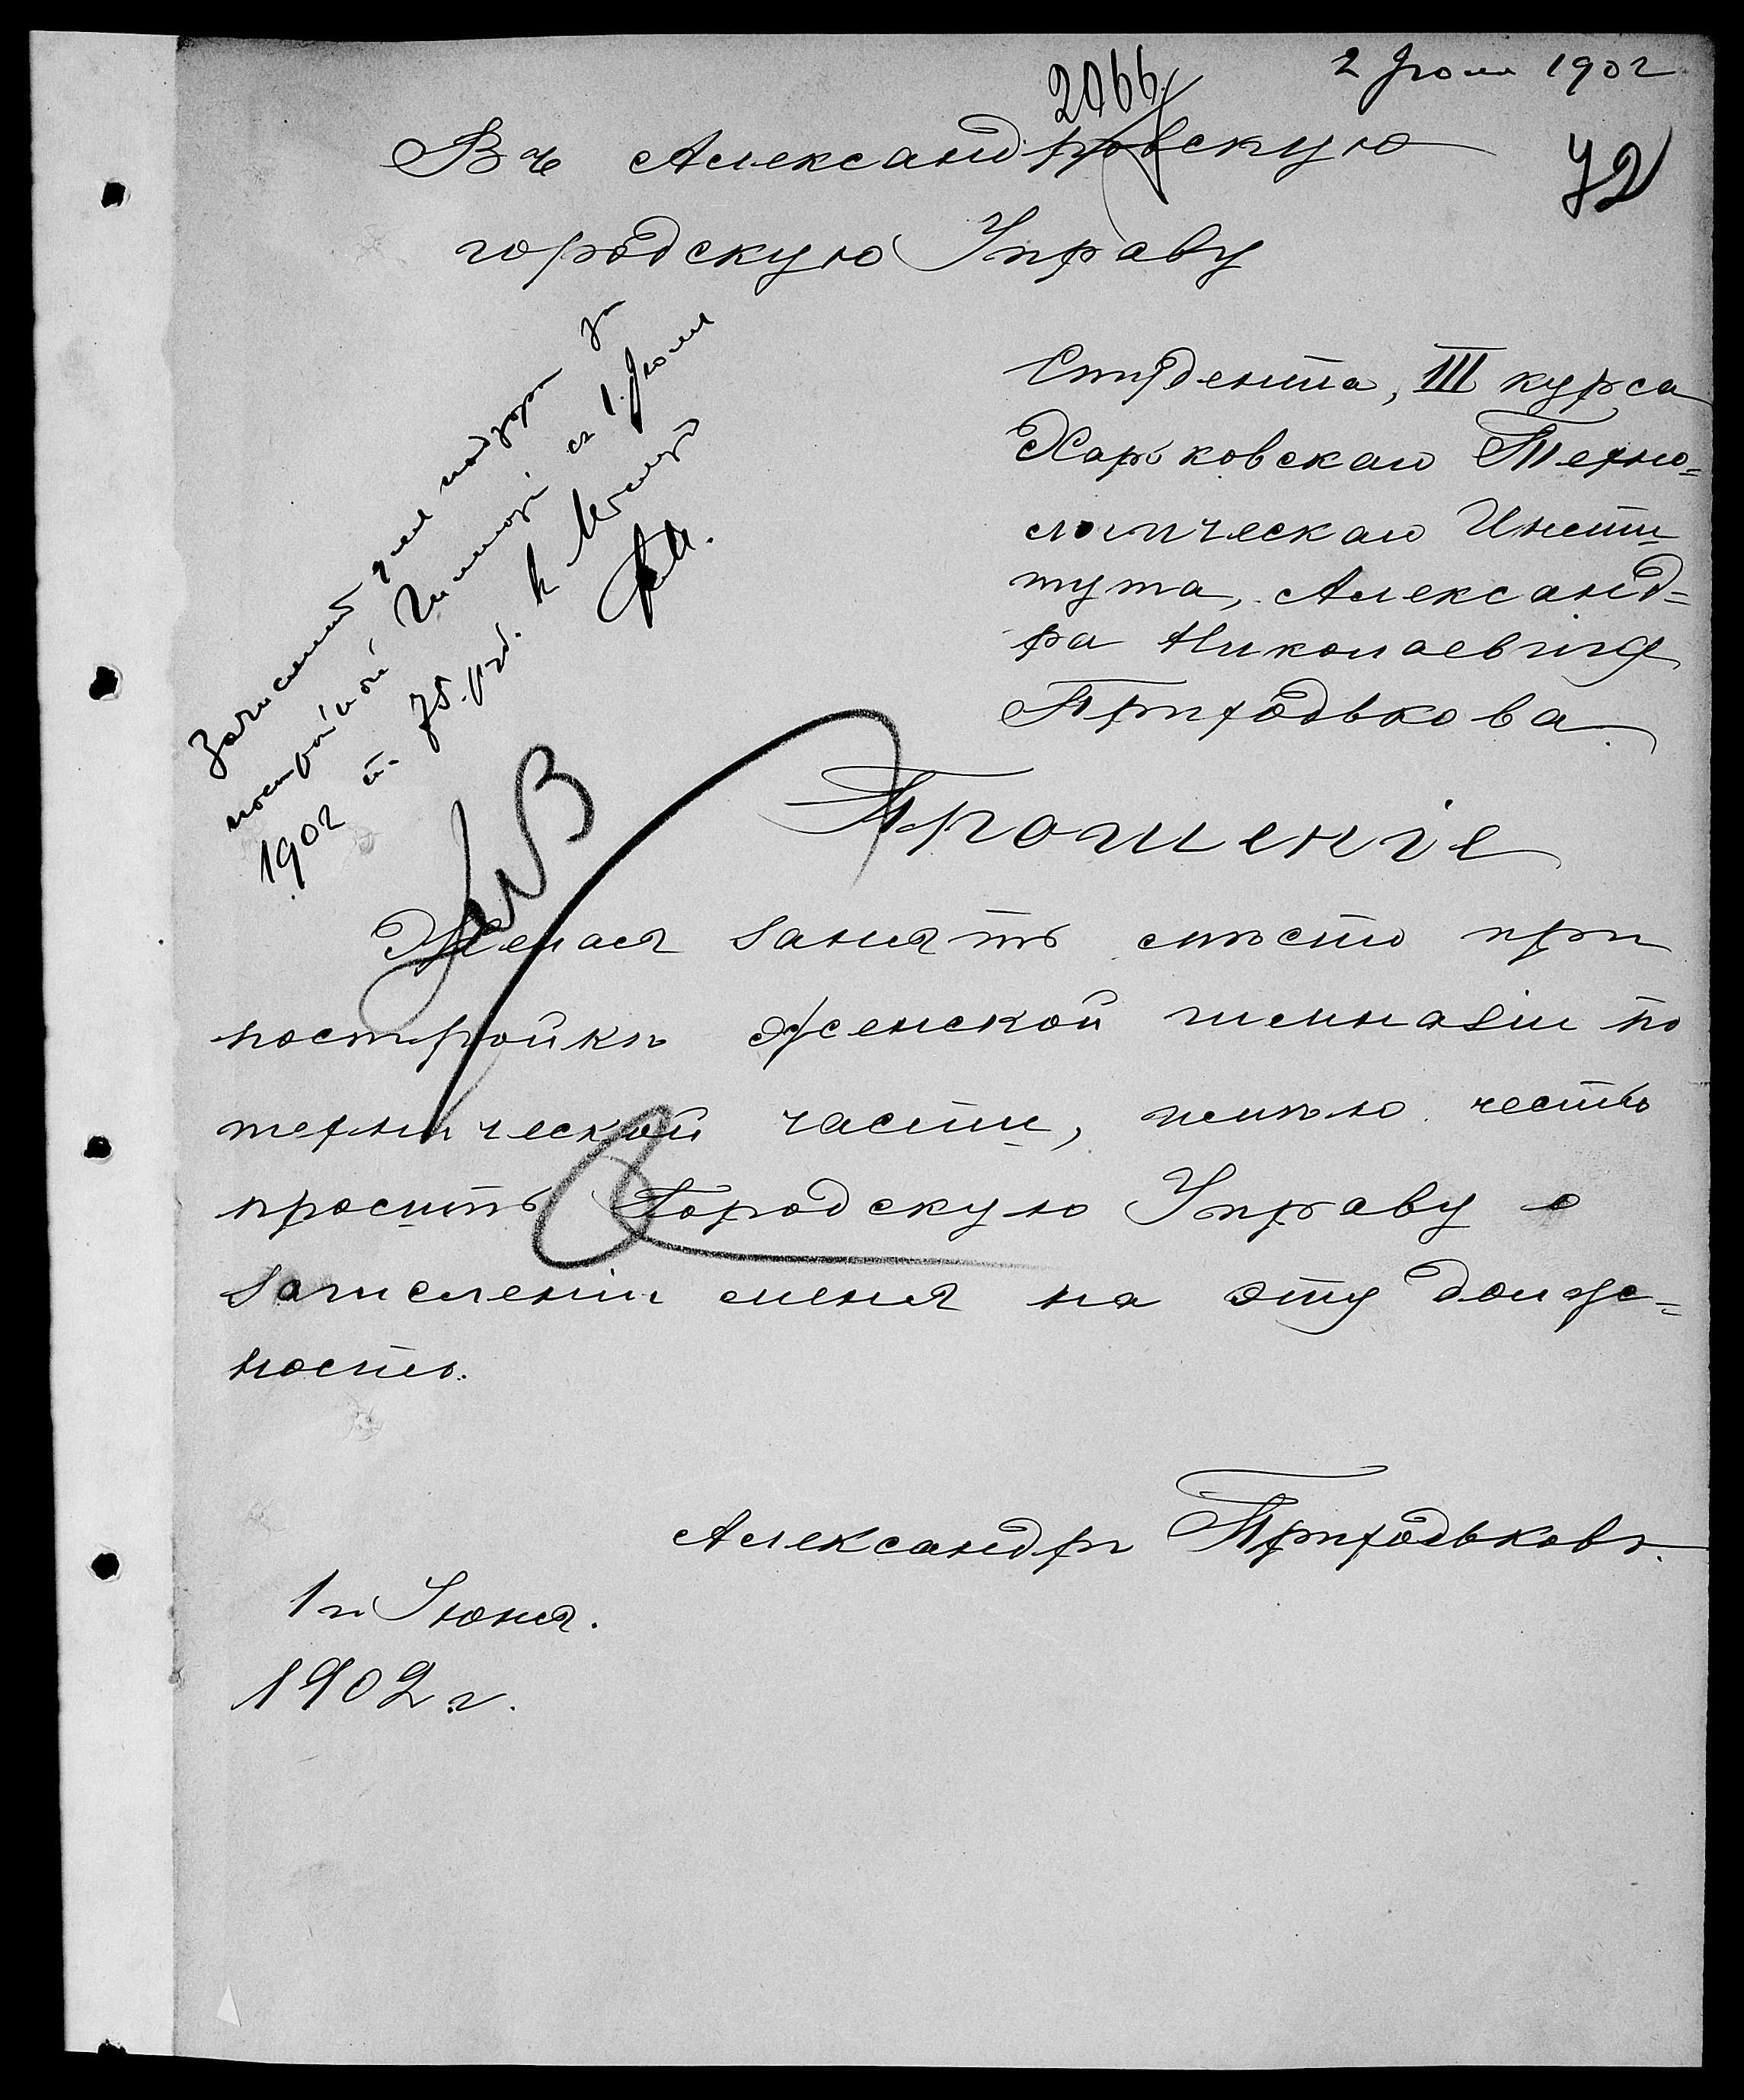 2 Іюля 1902
2066
72
Въ Александровскую
городскую Управу
Студента, III курса
Харьковскаго Техно=
логическаго Инсти
тута, Александ=
ра Николаевича
Приходькова.
Зачислить для надзора за
постройкой Гимназіи съ 1 Іюля
1902 г. 75 руб. въ мѣсяцъ
Прошеніе
Желая занять мѣсто при
постройкѣ женской гимназіи по
технической части, имѣю честь
просить Городскую Управу о
зачисленіи меня на эту долж=
ность.
Александръ Приходьковъ.
1го Іюня.
1902 г.